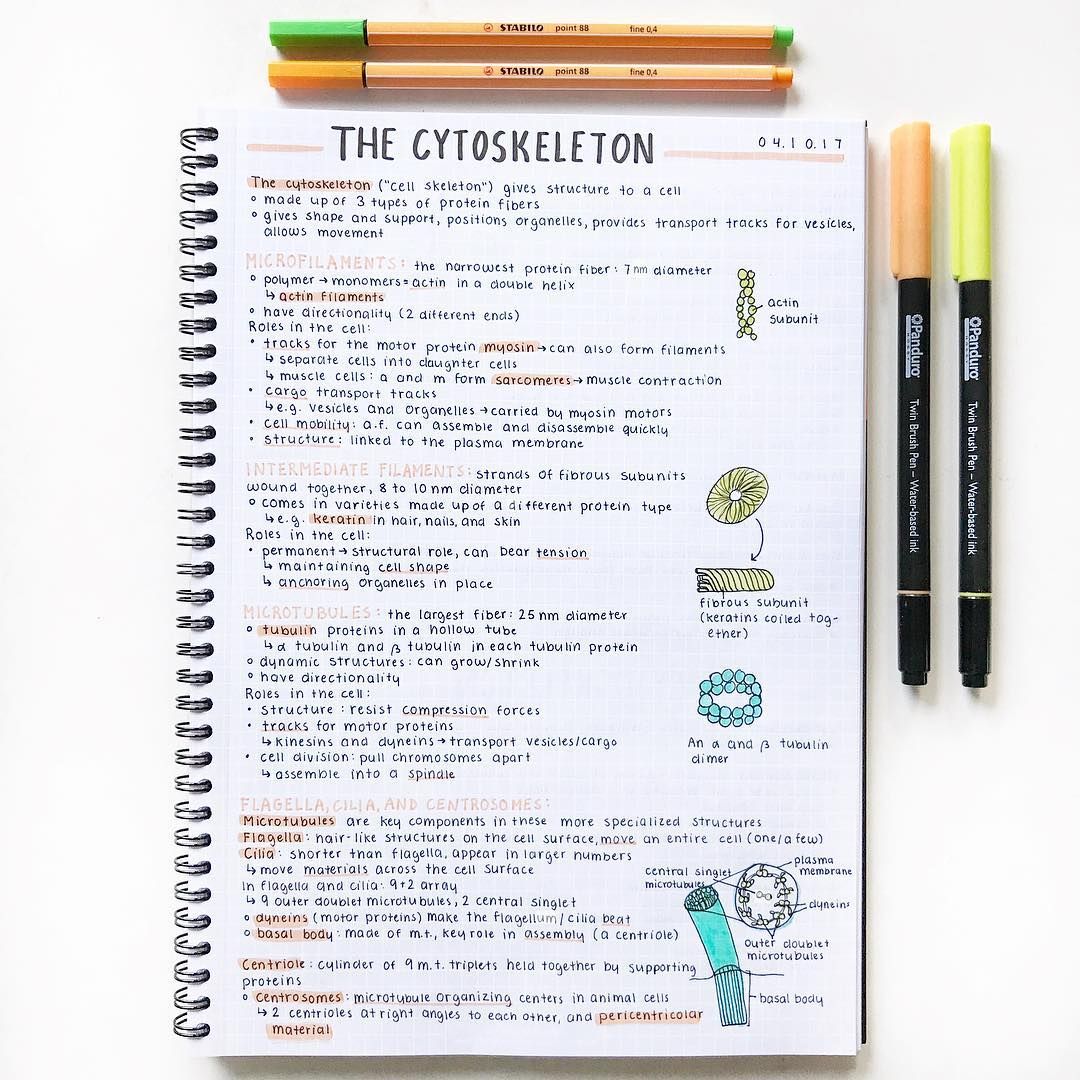 STABILO point 88 fine 0,4
STABILO point 88 fine 0,4
THE CYTOSKELETON
04.10.17
The cytoskeleton ("cell skeleton") gives structure to a cell
° made up of 3 types of protein fibers
° gives shape and support, positions organelles, provides transport tracks for vesicles,
allows movement
MICROFILAMENTS: the narrowest protein fiber: 7 nm diameter
° polymer → monomers = actin in a double helix
↳ actin filaments
° have directionality (2 different ends)
Roles in the cell:
• tracks for the motor protein myosin → can also form filaments
↳ separate cells into daughter cells
↳ muscle cells: a and m form sarcomeres → muscle contraction
• cargo transport tracks
↳ e.g. vesicles and organelles → carried by myosin motors
• cell mobility: a.f. can assemble and disassemble quickly
• structure: linked to the plasma membrane
actin
subunit
INTERMEDIATE FILAMENTS: strands of fibrous subunits
wound together, 8 to 10 nm diameter
° comes in varieties made up of a different protein type
↳ e.g. keratin in hair, nails, and skin
Roles in the cell:
• permanent → structural role, can bear tension
↳ maintaining cell shape
↳ anchoring organelles in place
fibrous subunit
(keratins coiled tog-
ether)
MICROTUBULES: the largest fiber: 25 nm diameter
° tubulin proteins in a hollow tube
↳ α tubulin and β tubulin in each tubulin protein
° dynamic structures: can grow/shrink
° have directionality
Roles in the cell:
• Structure: resist compression forces
• tracks for motor proteins
↳ kinesins and dyneins → transport vesicles/cargo
• cell division: pull chromosomes apart
↳ assemble into a spindle
An α and β tubulin
dimer
FLAGELLA, CILIA, AND CENTROSOMES:
Microtubules are key components in these more specialized structures
Flagella: hair-like structures on the cell surface, move an entire cell (one/a few)
Cilia: shorter than flagella, appear in larger numbers
↳ move materials across the cell surface
In flagella and cilia: 9+2 array
↳ 9 outer doublet microtubules, 2 central singlet
° dyneins (motor proteins) make the flagellum/cilia beat
° basal body: made of m.t., key role in assembly (a centriole)
Centriole: cylinder of 9 m.t. triplets held together by supporting
proteins
° Centrosomes: microtubule organizing centers in animal cells
↳ 2 centrioles at right angles to each other, and pericentricolar
material
central singlet
microtubules
plasma
membrane
dyneins
outer doublet
microtubules
basal body
Panduro
Twin Brush Pen – Water-based ink
Panduro
Twin Brush Pen – Water-based ink